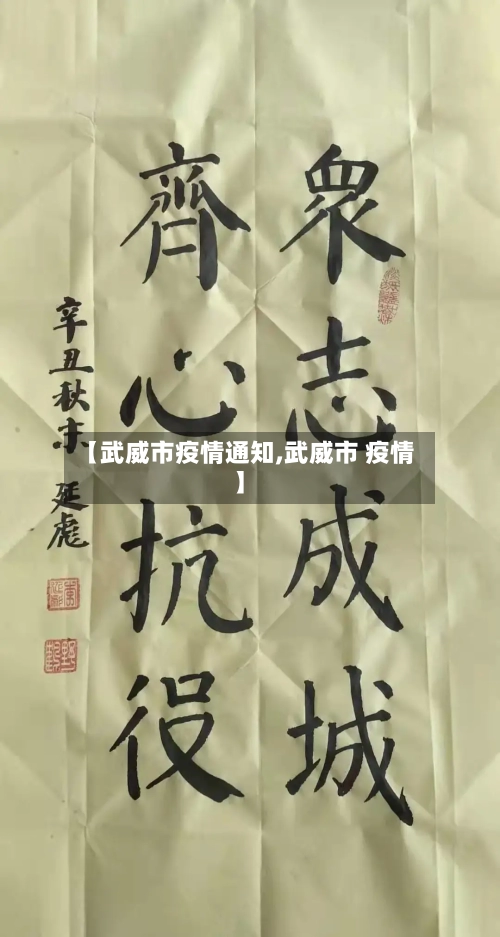 衆志成城
齊心抗役
辛丑秋
延彪
【武威市疫情通知,武威市 疫情
】